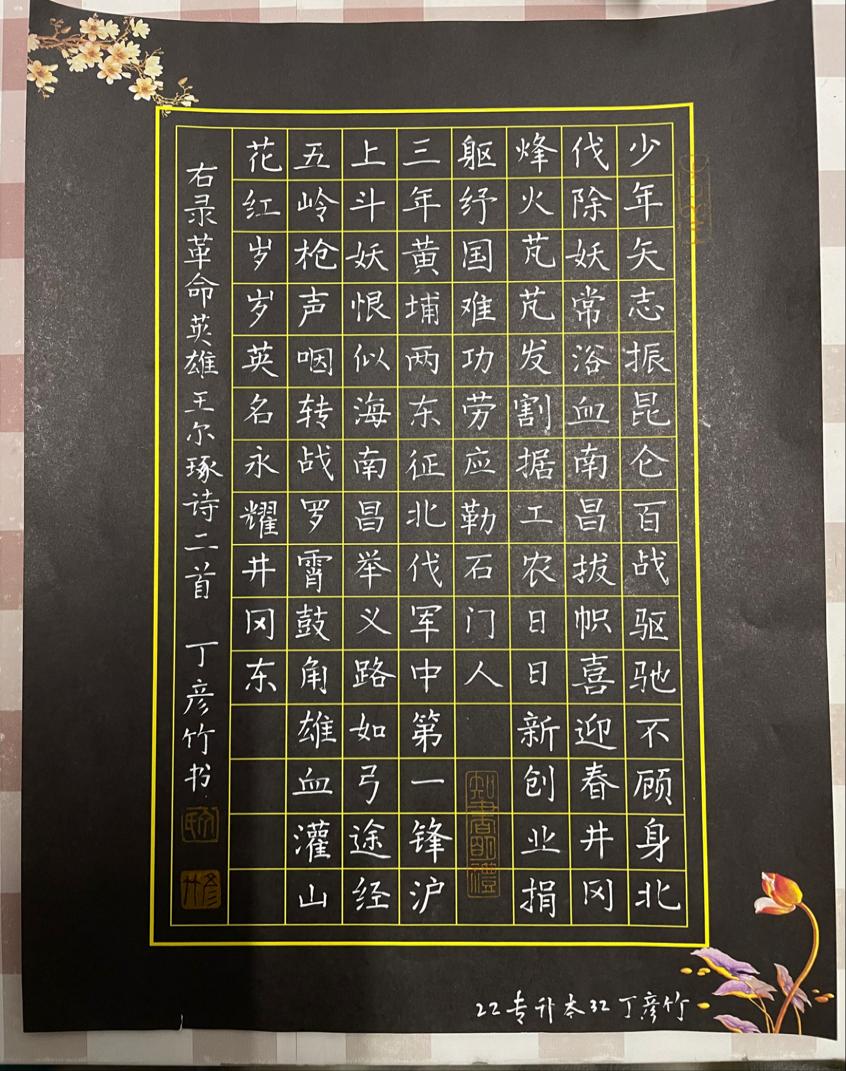 少年矢志振昆仑百战驱驰不顾身北
伐除妖常浴血南昌拔帜喜迎春井冈
烽火芃芃发割据工农日日新创业捐
躯纾国难功劳应勒石门人
三年黄埔两东征北伐军中第一锋沪
上斗妖恨似海南昌举义路如弓途经
五岭枪声咽转战罗霄鼓角雄血灌山
花红岁岁英名永耀井冈东
右录革命英雄王尔琢诗二首 丁彦竹书
知书明礼
22专升本32丁彦竹